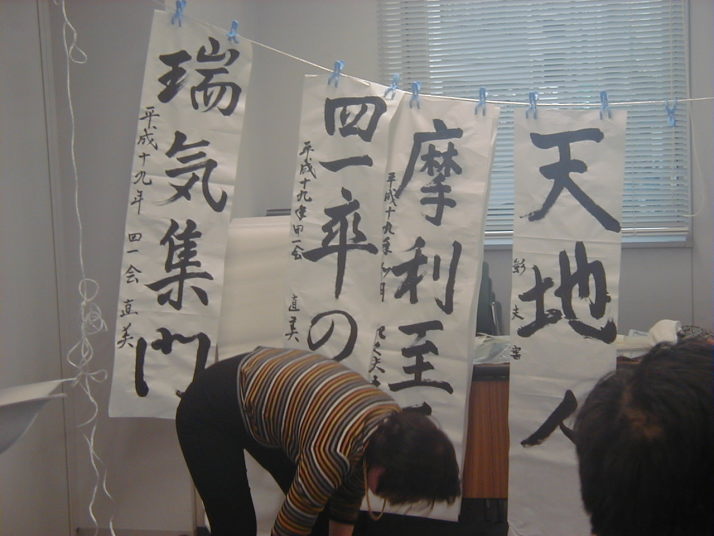 瑞気集門
平成十九年 四一会 直美
四一卒の
平成十九年 四一会 直美
摩利至
平成十九年
天地人